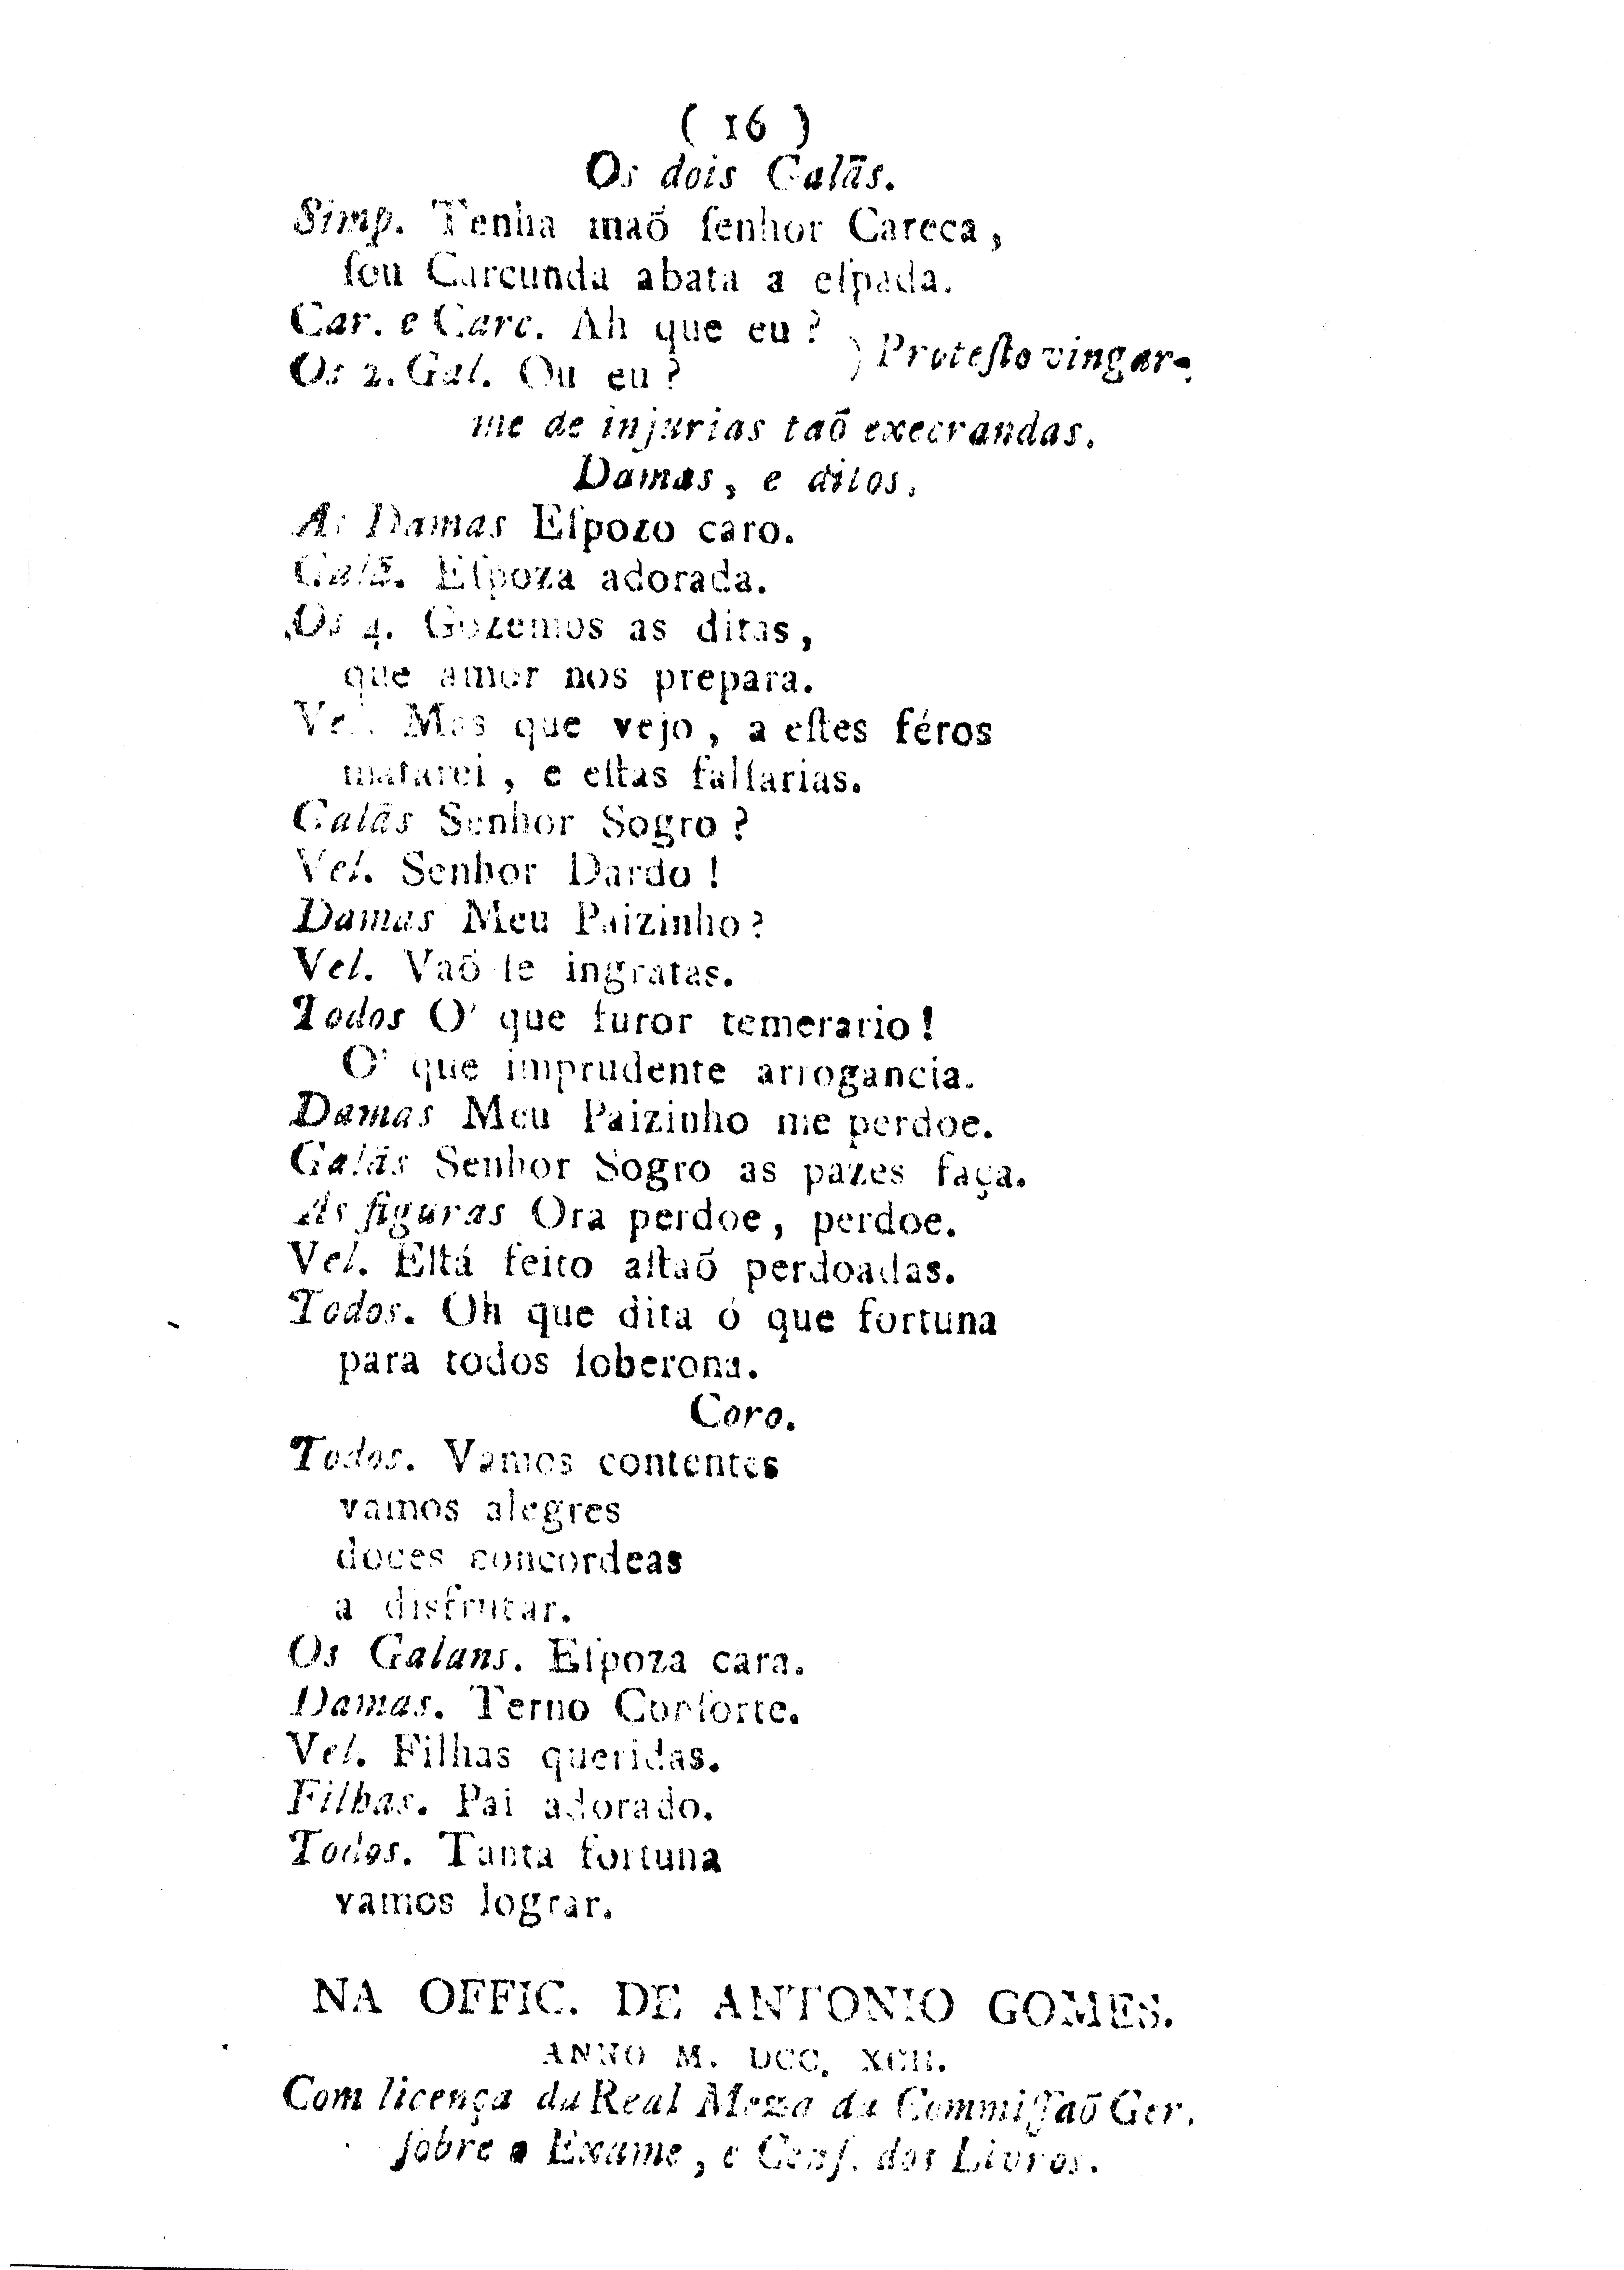 ( 16 )
Os dois Galãs.
Simp. Tenha maõ ſenhor Careca,
ſou Carcunda abata a eſpada.
Car. e Carc. Ah que eu?
Os 2. Gal. Ou eu?
) Proteſto vingar-
me de injurias taõ execrandas.
Damas, e ditos.
As Damas Eſpozo caro.
Galã. Eſpoza adorada.
Os 4. Gozemos as ditas,
que amor nos prepara.
Vel. Mas que vejo, a eſtes féros
matarei, e eſtas falſarias.
Galãs Senhor Sogro?
Vel. Senhor Dardo!
Damas Meu Paizinho?
Vel. Vaõ-ſe ingratas.
Todos O' que furor temerario!
O' que imprudente arrogancia.
Damas Meu Paizinho me perdoe.
Galãs Senhor Sogro as pazes faça.
As figuras Ora perdoe, perdoe.
Vel. Eſtá feito aſtaõ perdoadas.
Todos. Oh que dita ó que fortuna
para todos ſoberona.
Coro.
Todos. Vamos contentes
vamos alegres
doces concordeas
a disfrutar.
Os Galans. Eſpoza cara.
Damas. Terno Conſorte.
Vel. Filhas queridas.
Filhas. Pai adorado.
Todos. Tanta fortuna
vamos lograr.
NA OFFIC. DE ANTONIO GOMES.
ANNO M. DCC. XCII.
Com licença da Real Meza da Commiſſaõ Ger.
ſobre o Exame, e Cenſ. dos Livros.